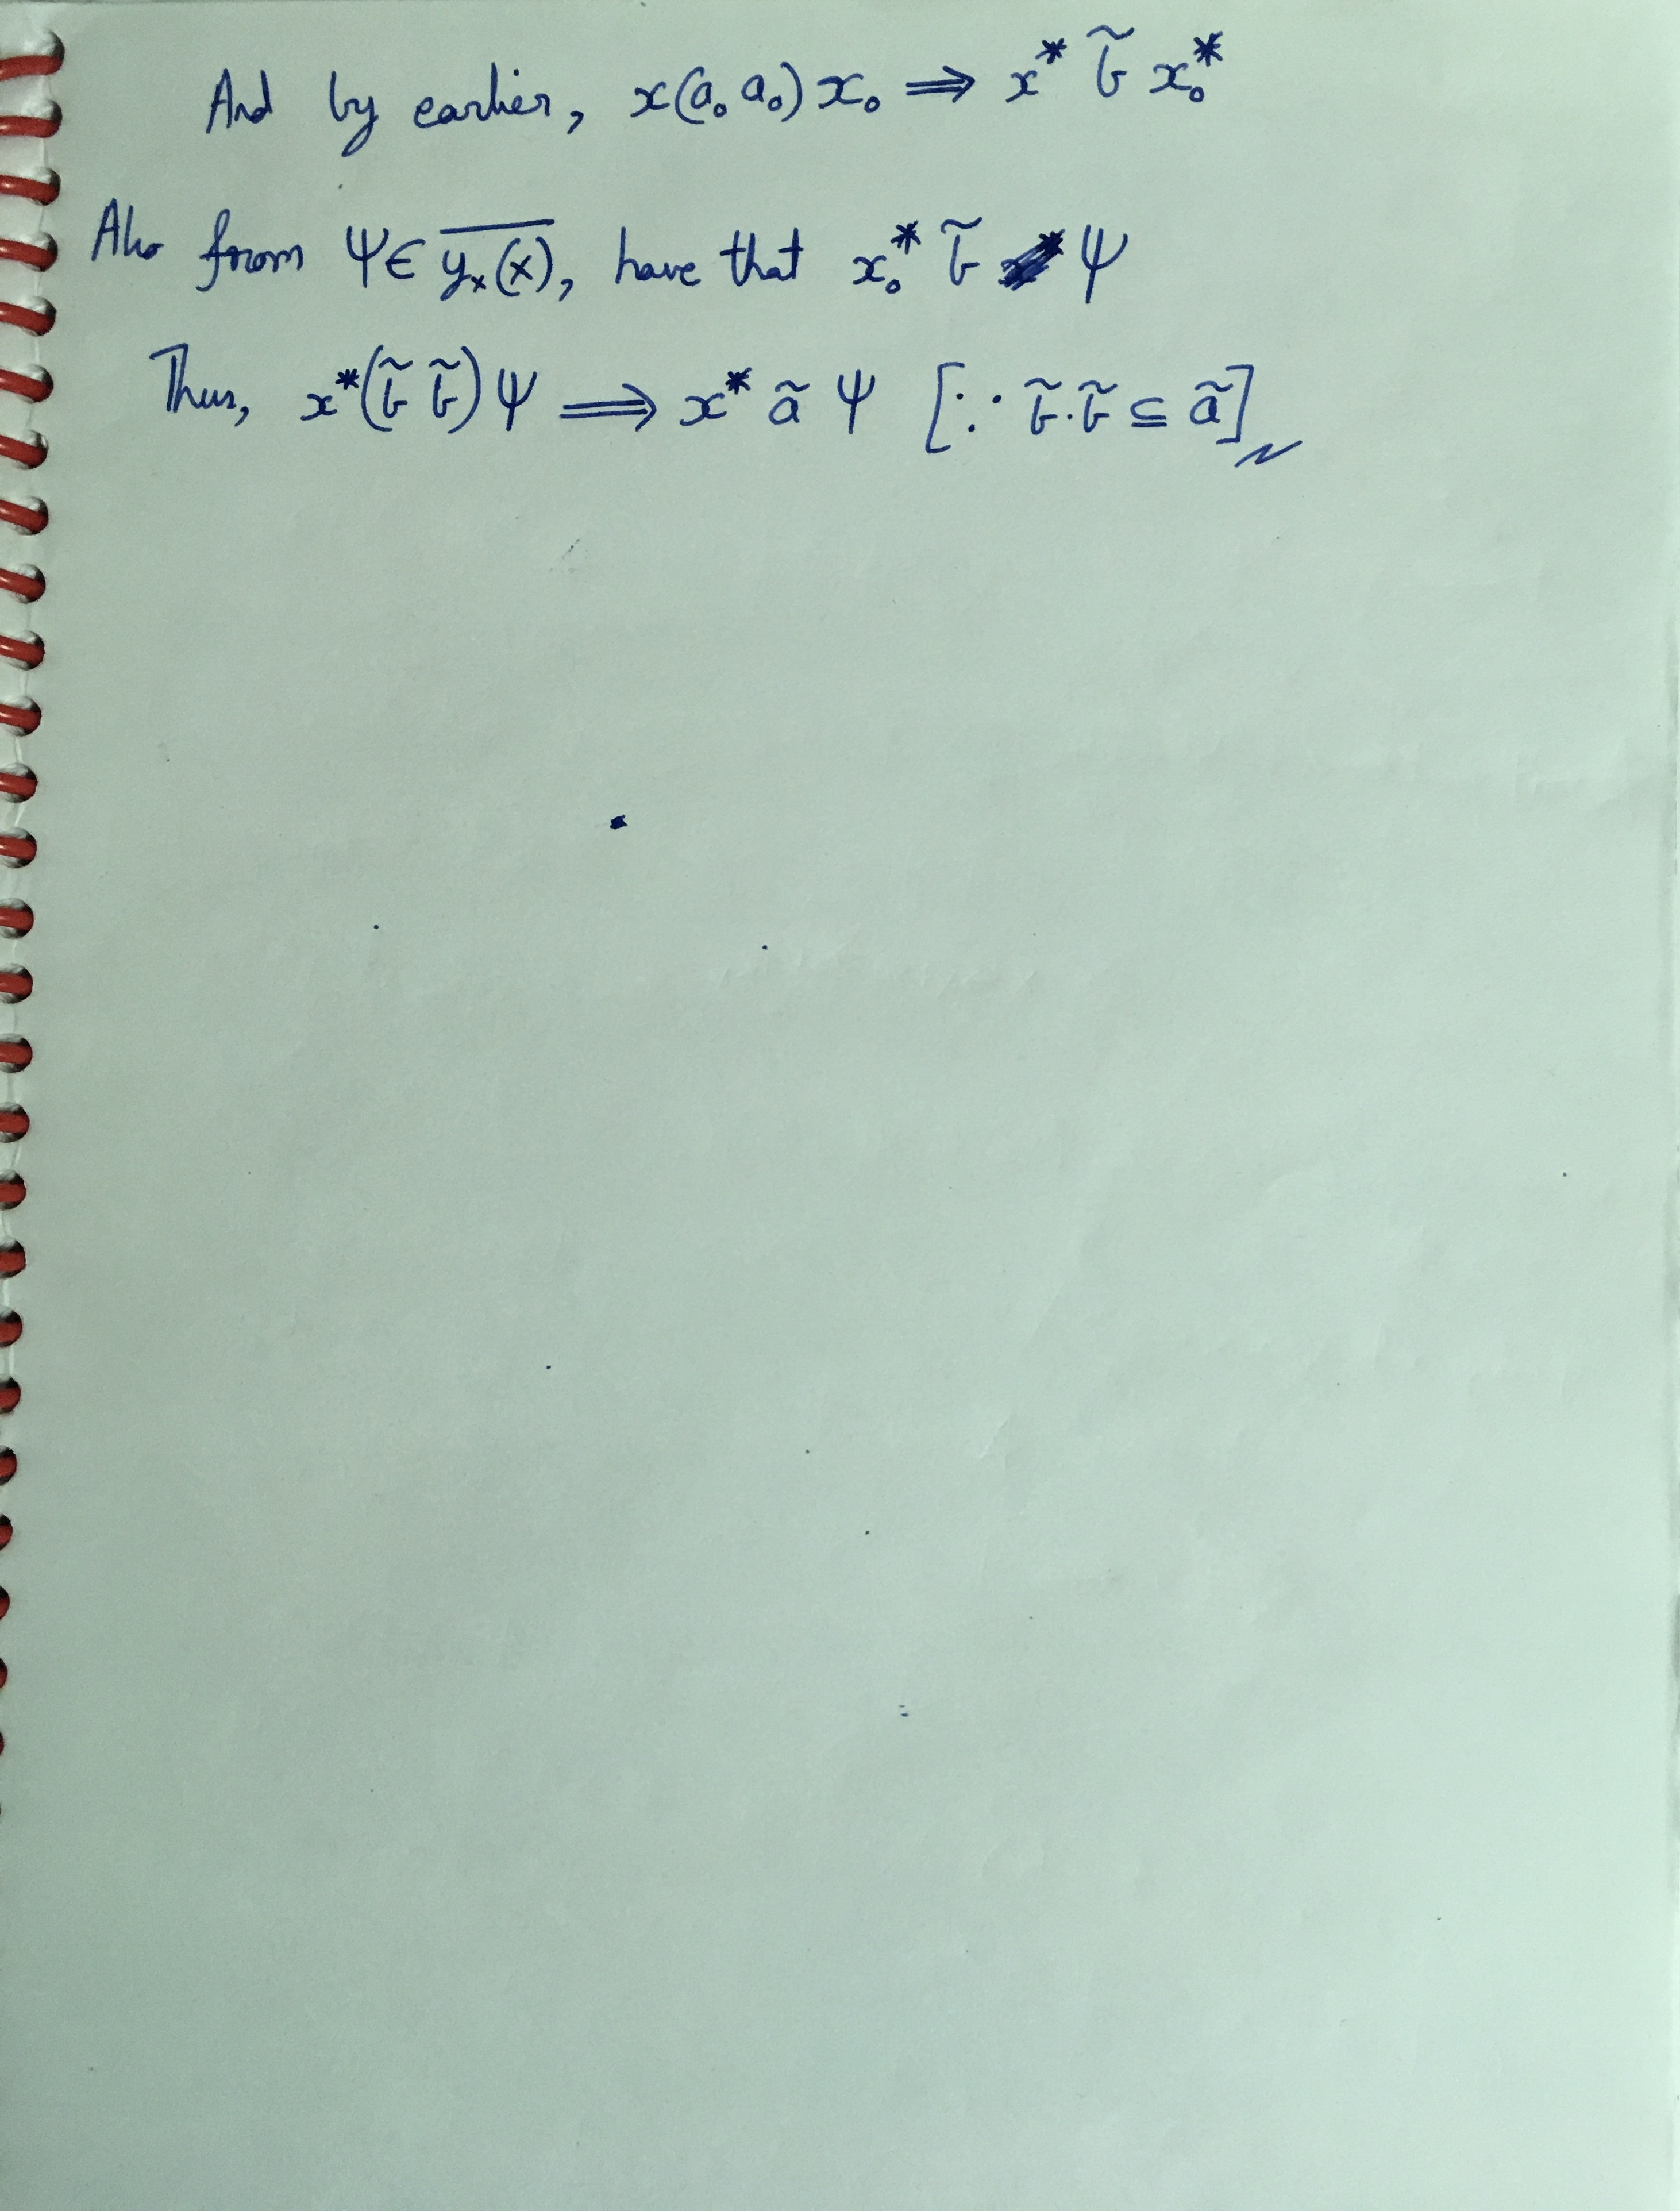 And by earlier, x(a₀ a₀) x₀ ⟹ x* b̃ x₀*
Also from Ψ ∈ \overline{yₓ(x)}, have that x₀* b̃ Ψ
Thus, x*(b̃ b̃) Ψ ⟹ x* ã Ψ [∵ b̃·b̃ ⊆ ã]